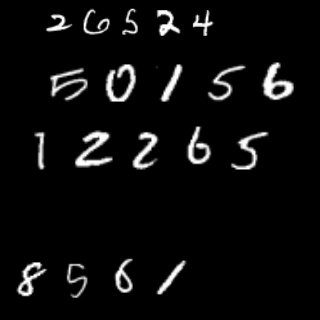 26524
50156
12265
8561